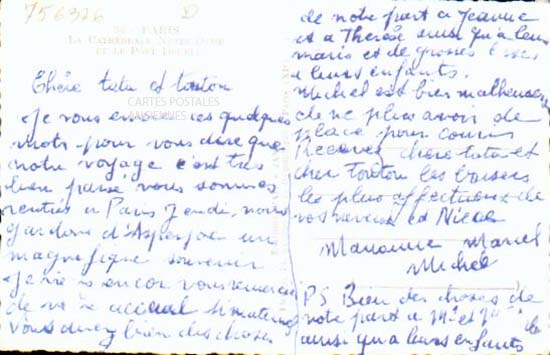 756326 D
PARIS
LA CATHÉDRALE NOTRE-DAME
ET LE PONT
Chère tata et tonton
Je vous envoi ces quelques
mots pour vous dire que
notre voyage c'est très
bien passé, vous sommes
rentrés a Paris Jeudi, nous
gardons d'Asperjoc un
magnifique souvenir
Je viens encor vous remercier
de votre accueil si maternel
Vous direz bien des choses
CARTES POSTALES
ANCIENNES
de notre part a Jeanne
et a Thérèse ainsi qu'a leur
maris et de grosses bises
a leurs enfants.
Michel est bien malheureux
de ne plus avoir de
place pour courir
Recevez chère tata et
cher tonton les baisers
les plus affectueux de
vos neveux et Nièce
Marianne Marcel
Michel
PS Bien des choses de
notre part a Mr et Mme
ainsi qu'a leurs enfants